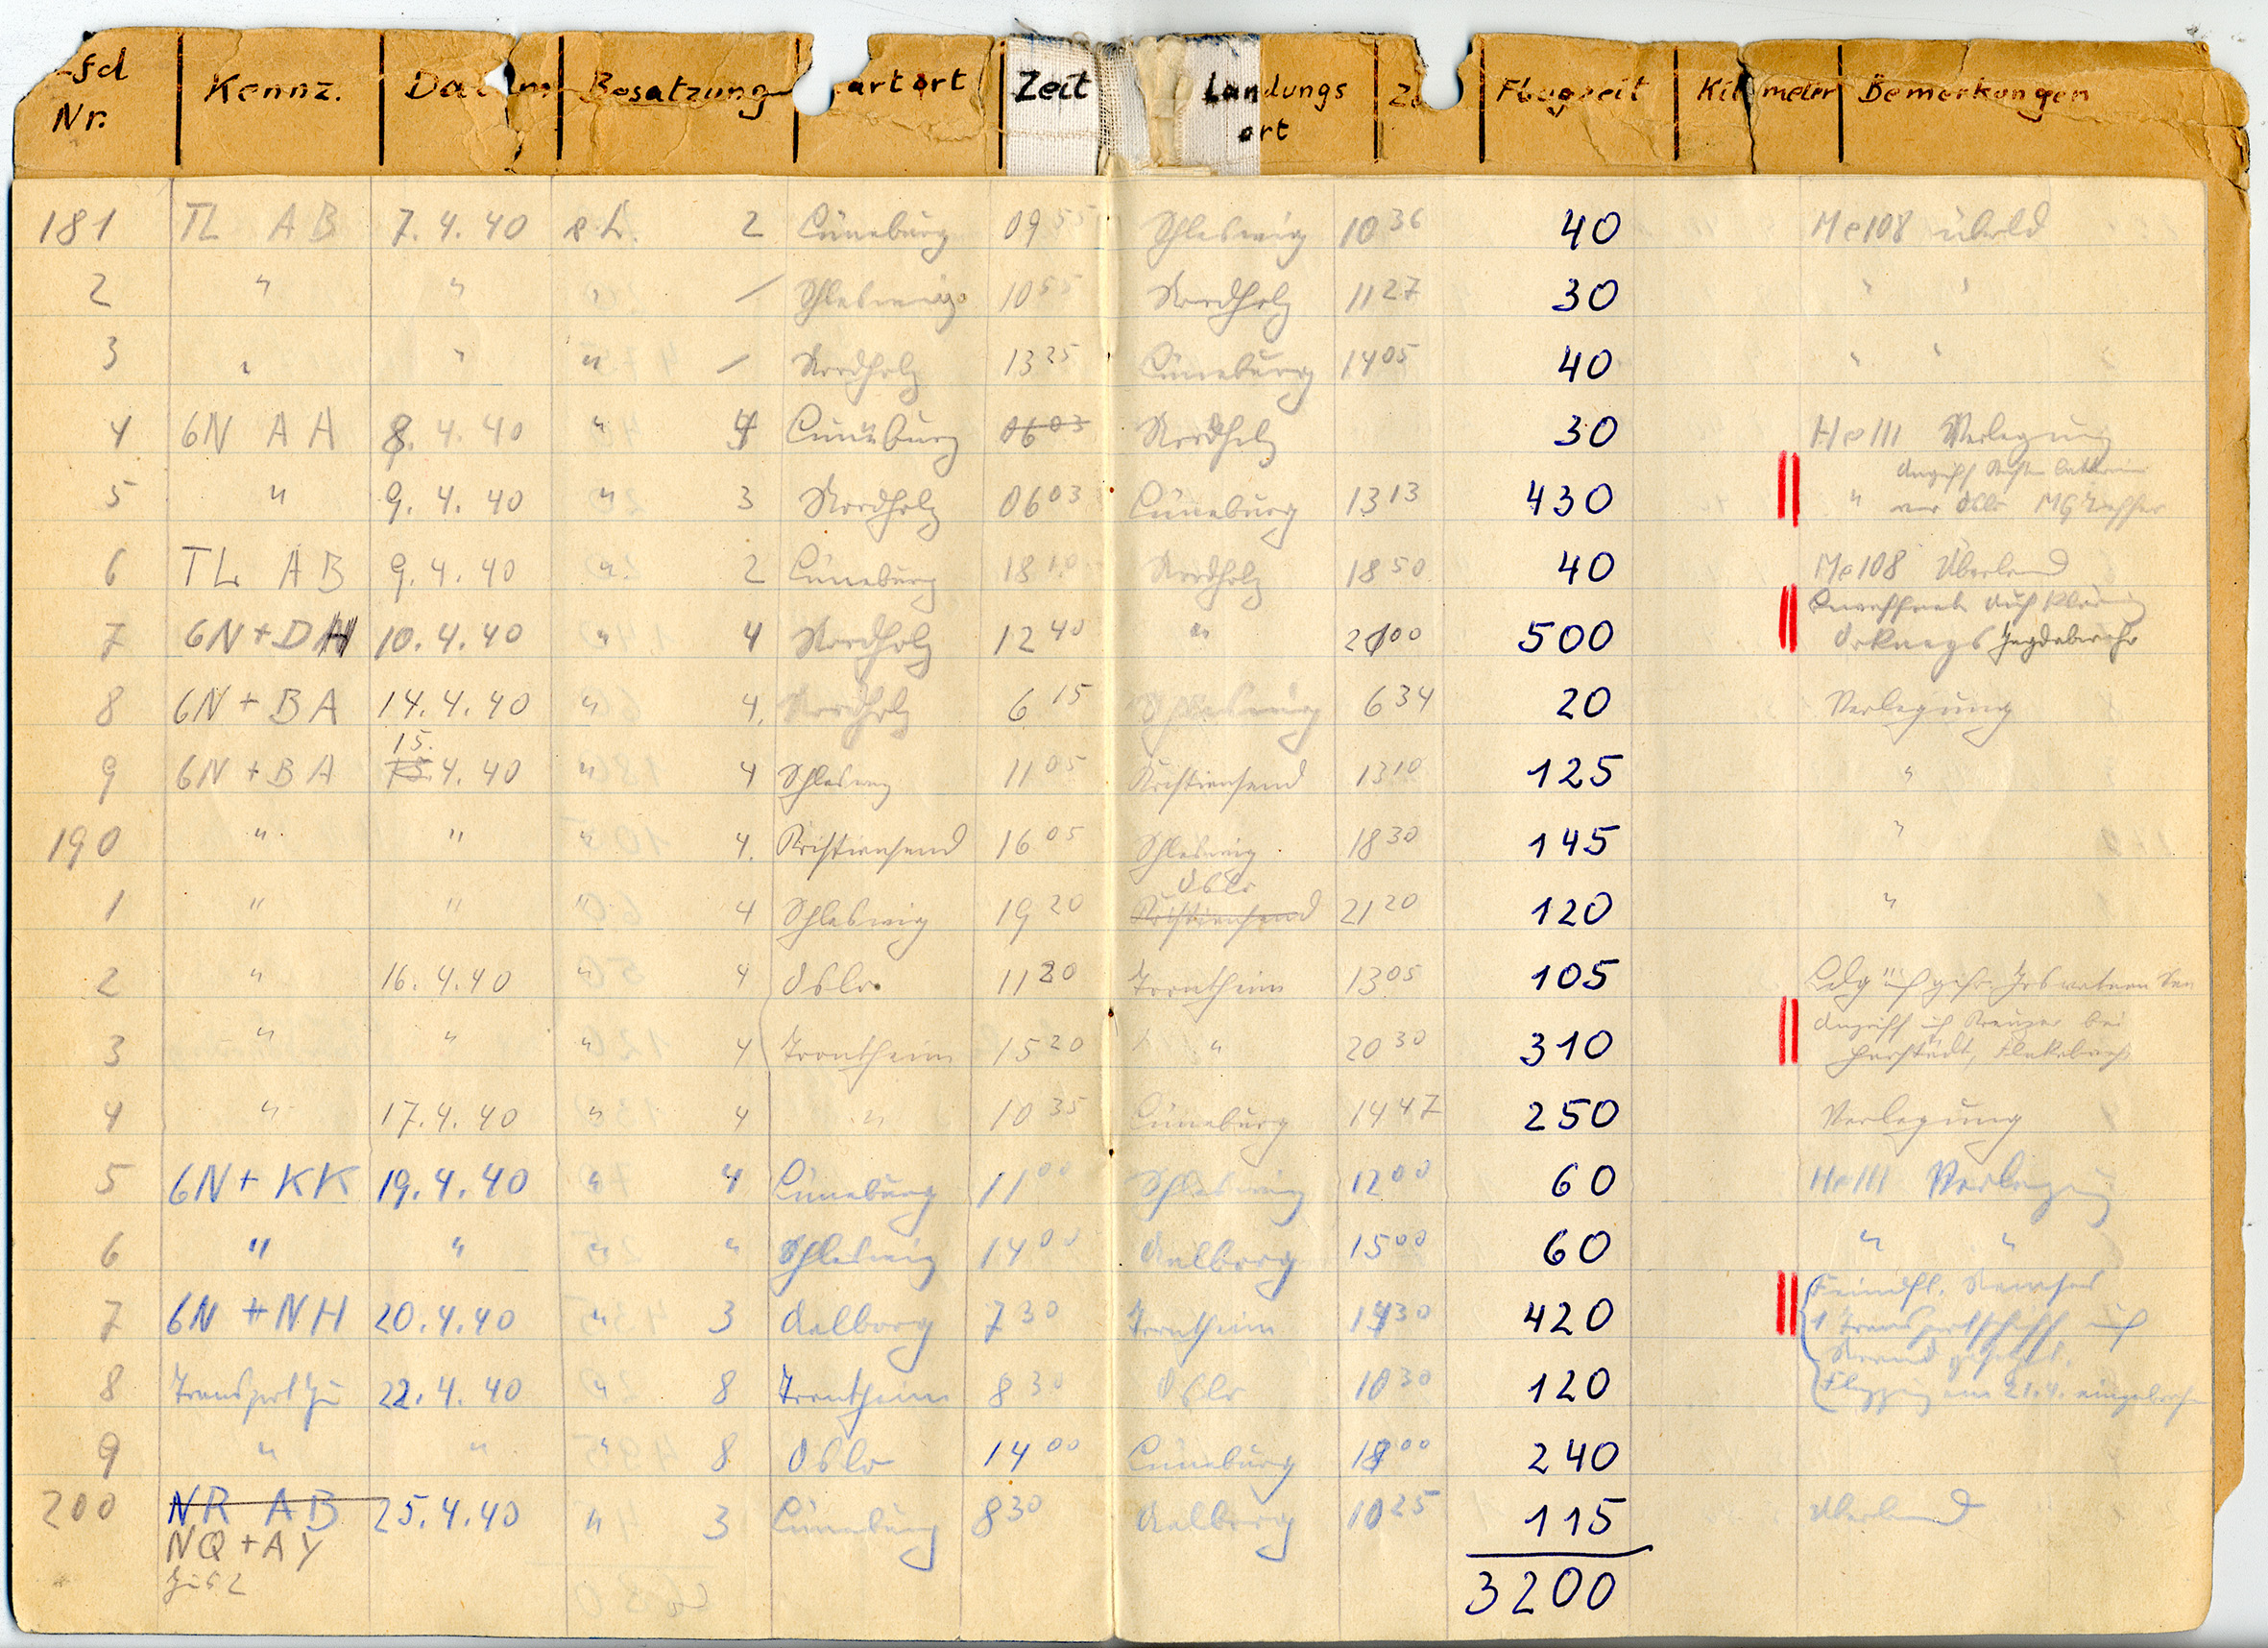 fd Nr. Kennz. Da m Besatzung artort Zeit Landungs ort Ze Flugzeit Kil meter Bemerkungen
181 TL AB 7.4.40 2 Lüneburg 09 55 Schleswig 10 36 40 Me 108 überld
2 " " " Schleswig 10 55 Nordholz 11 27 30 " "
3 " " " Nordholz 13 25 Lüneburg 14 05 40 " "
4 6N AA 8.4.40 " 4 Lüneburg 06 03 Nordholz 30 He 111 Verlegung
5 " 9.4.40 " 3 Nordholz 06 03 Lüneburg 13 13 430 " Angriff Küsten vor Oslo MG Treffer
6 TL AB 9.4.40 " 2 Lüneburg 18 10 Nordholz 18 50 40 Me 108 Überland
7 6N+DH 10.4.40 " 4 Nordholz 12 40 " 21 00 500 Bewaffnete Aufklärung Orkneys Jagdabwehr
8 6N+BA 14.4.40 " 4. Nordholz 6 15 Schleswig 6 34 20 Verlegung
9 6N+BA 15. 4.40 " 4 Schleswig 11 05 Kristiansand 13 10 125 "
190 " " " 4. Kristiansand 16 05 Schleswig 18 30 145 "
1 " " " 4 Schleswig 19 20 Kristiansand Oslo 21 20 120 "
2 " 16.4.40 " 4 Oslo 11 20 Trontheim 13 05 105 Ldg auf
3 " " " 4 Trontheim 15 20 " 20 30 310 Angriff auf Kreuzer bei Harstadt,
4 " 17.4.40 " 4 " 10 35 Lüneburg 14 47 250 Verlegung
5 6N+KK 19.4.40 " 4 Lüneburg 11 00 Schleswig 12 00 60 He 111 Verlegung
6 " " " " Schleswig 14 00 Aalborg 15 00 60 " "
7 6N+NH 20.4.40 " 3 Aalborg 7 30 Trontheim 14 30 420 Feindfl. Namsos 1 Transportschiff auf Strand gesetzt.
8 Transport Ju 22.4.40 " 8 Trontheim 8 30 Oslo 10 30 120 Flugzeug am 21.4.
9 " " " 8 Oslo 14 00 Lüneburg 18 00 240
200 NR AB 25.4.40 " 3 Lüneburg 8 30 Aalborg 10 25 115 Überland
NQ+AY
Ju 52 3200